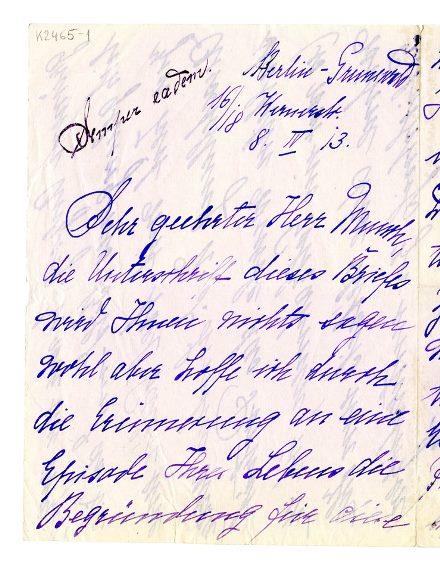 K2465-1
Semper eadem.
Berlin-Grunewald
16/18 Hernerstr.
8. IV 13.
Sehr geehrter Herr Munch,
die Unterschrift dieses Briefs
wird Ihnen nichts sagen
wohl aber hoffe ich durch
die Erinnerung an eine
Episode Ihres Lebens die
Begründung für eine